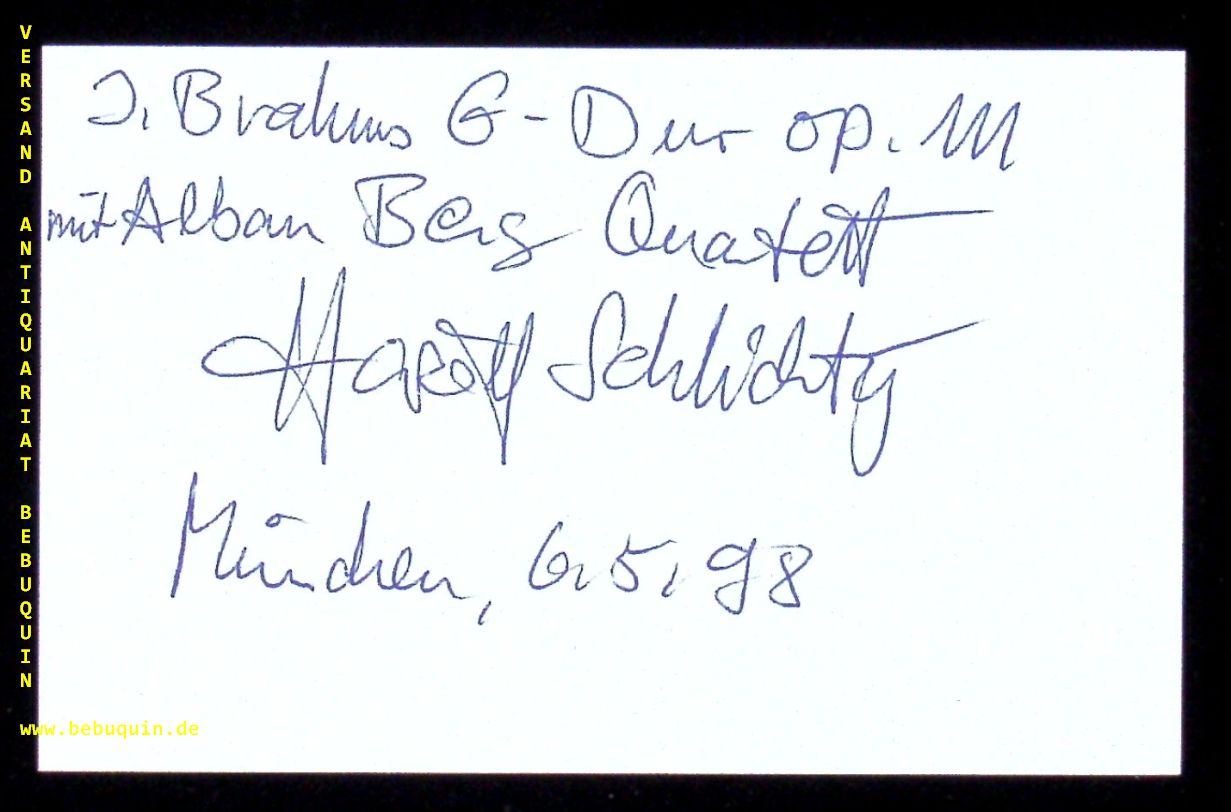 J. Brahms G-Dur op. 111
mit Alban Berg Quartett
Hariolf Schlichtig
München, 6.5.98
VERSAND ANTIQUARIAT BEBUQUIN
www.bebuquin.de